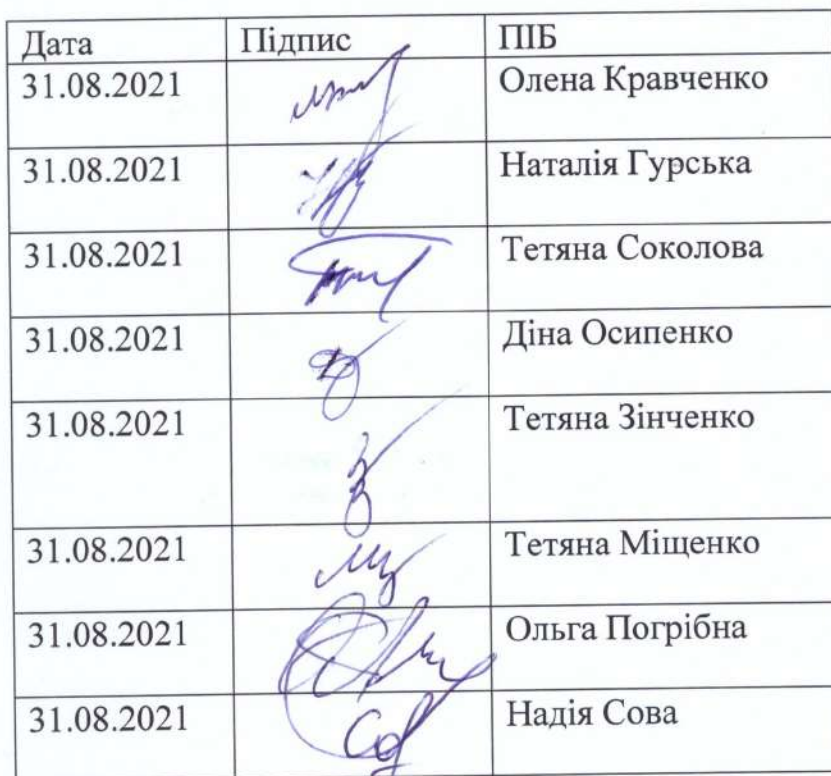 Дата Підпис ПІБ
31.08.2021 Олена Кравченко
31.08.2021 Наталія Гурська
31.08.2021 Тетяна Соколова
31.08.2021 Діна Осипенко
31.08.2021 Тетяна Зінченко
31.08.2021 Тетяна Міщенко
31.08.2021 Ольга Погрібна
31.08.2021 Надія Сова